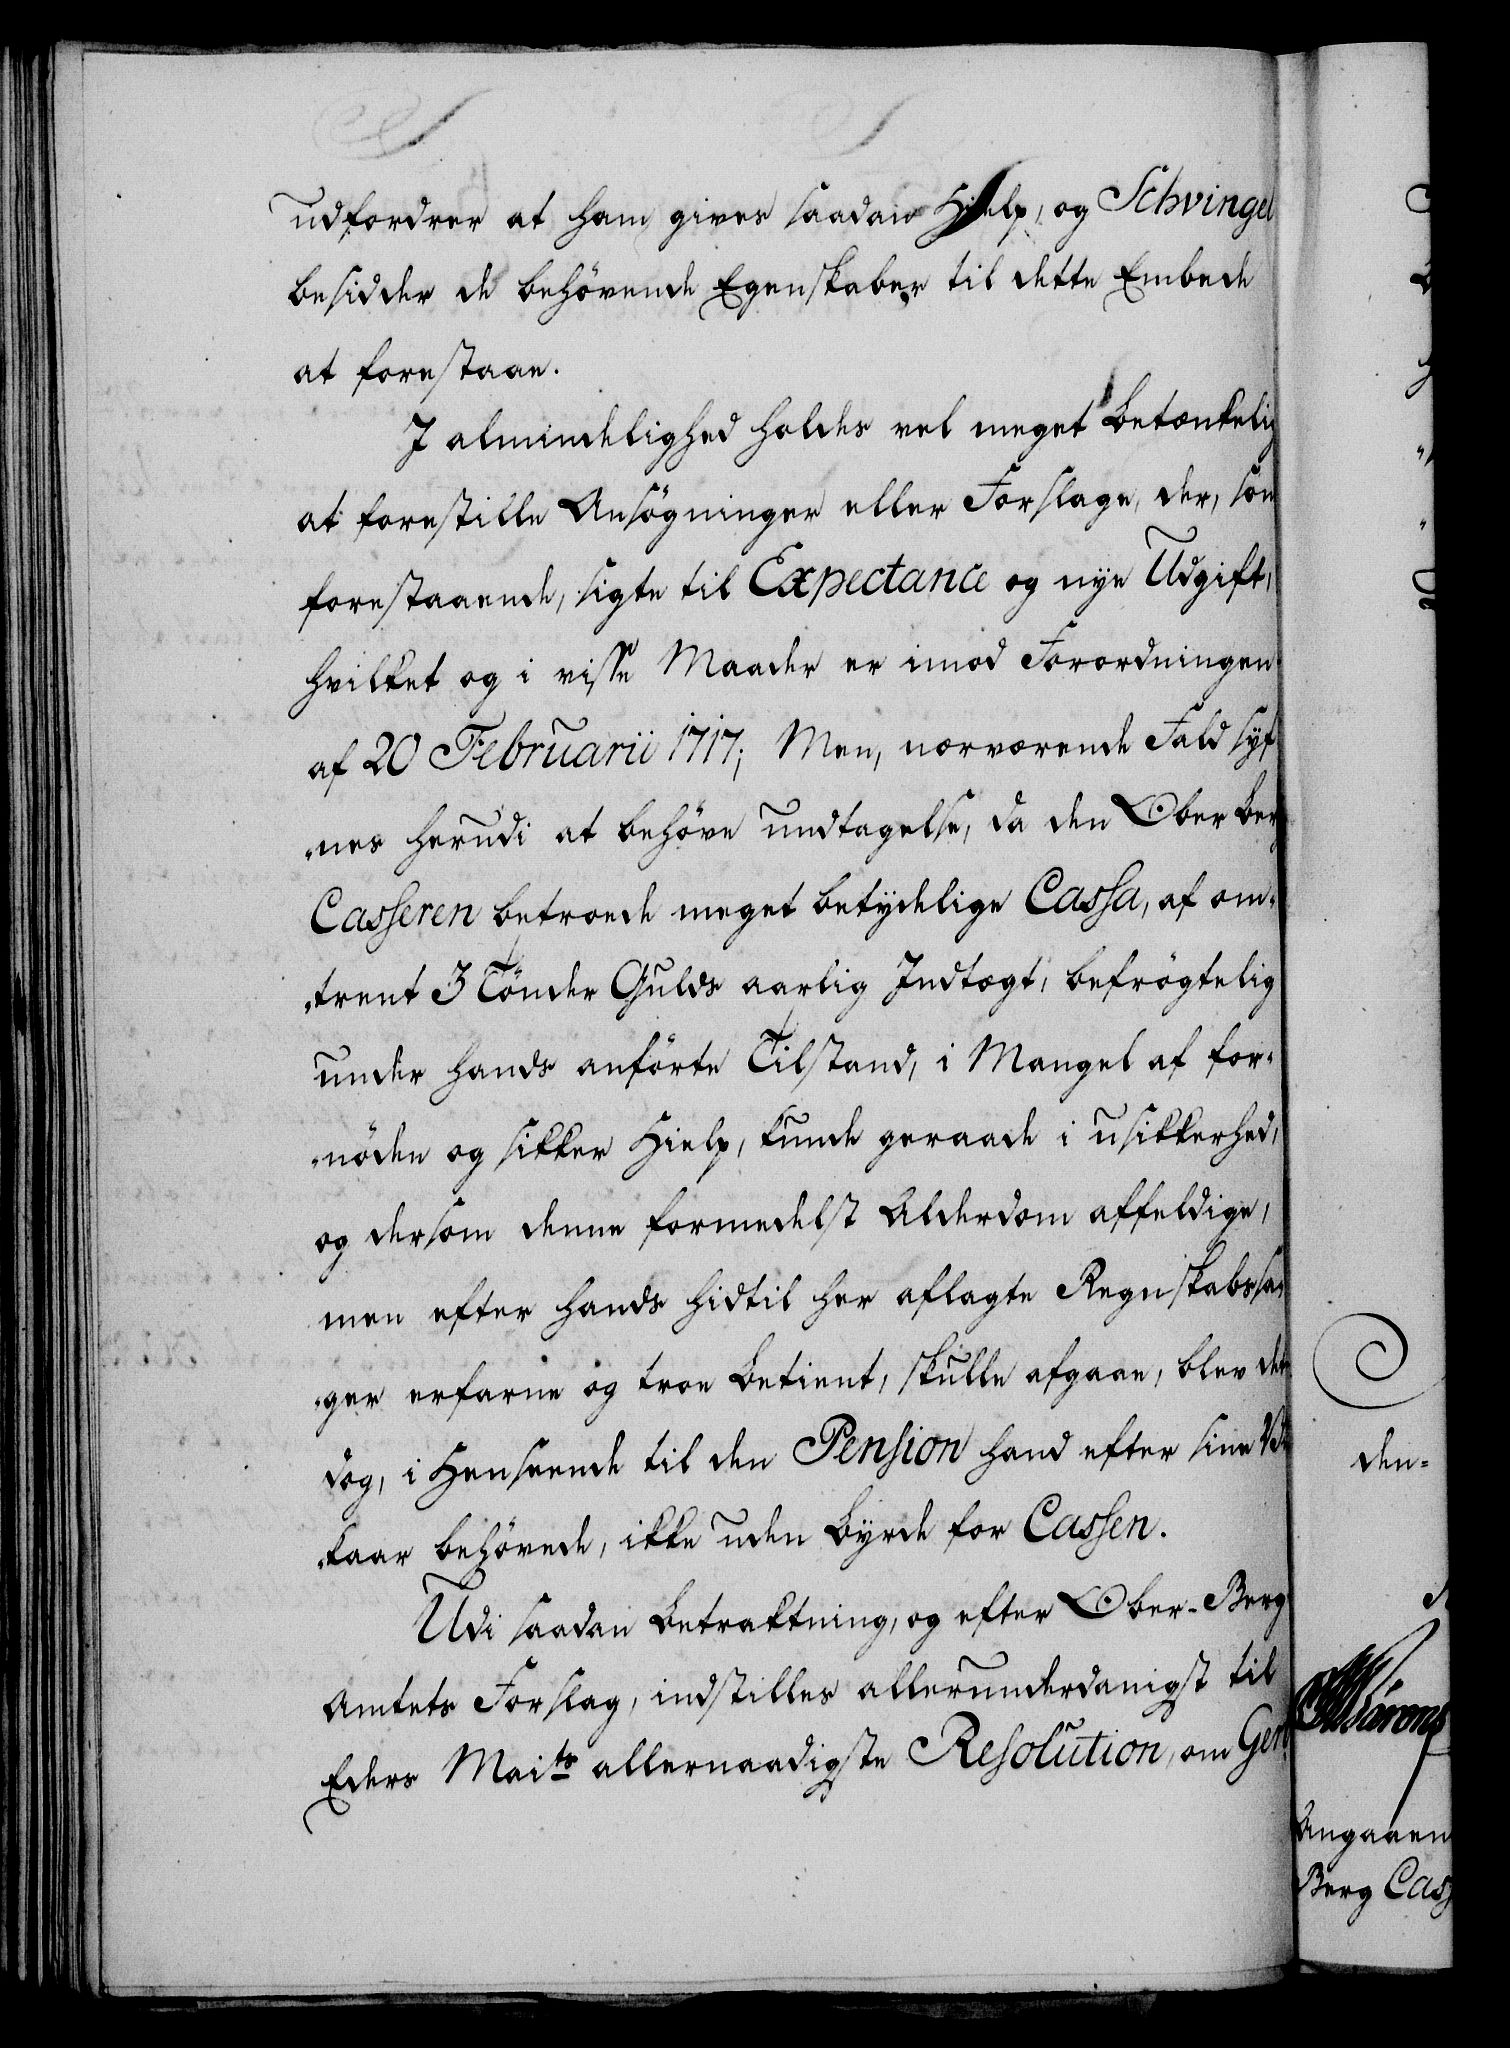 udfordrer at ham gives saadan Hielp, og Schvingel
besidder de behövende Egenskaber til dette Embede
at forestaae.
I almindelighed holdes vel meget betænkelig
at forestille Ansögninger eller Forslage, der, som
forestaaende, sigte til Expectance og nye Udgift,
hvilket og i visse Maader er imod Forordningen
af 20 Februarii 1717; Men, nærværende Fald syʃ
„nes herudi at behöve undtagelse, da den Ober Berg
Casseren betroede meget betydelige Cassa, af om„
„trent 3 Tönder Gulds aarlig Indtægt, befrögtelig
under hands anförte Tilstand, i Mangel af for„
„nöden og sikker Hielp, kunde geraade i usikkerhed,
og dersom denne formedelst Alderdom affeldige,
men efter hands hidtil her aflagte Regnskabs sa„
„ger erfarne og troe betient, skulle afgaae, blev det
dog, i Henseende til den Pension hand efter sine Vil
„kaar behövede, ikke uden Byrde for Cassen.
Udi saadan betraktning, og efter Ober-Berg
Amtets Forslag, indstilles allerunderdanigst til
Eders Maits allernaadigste Resolution, om Ger
den„
Angaaen
Berg Cass